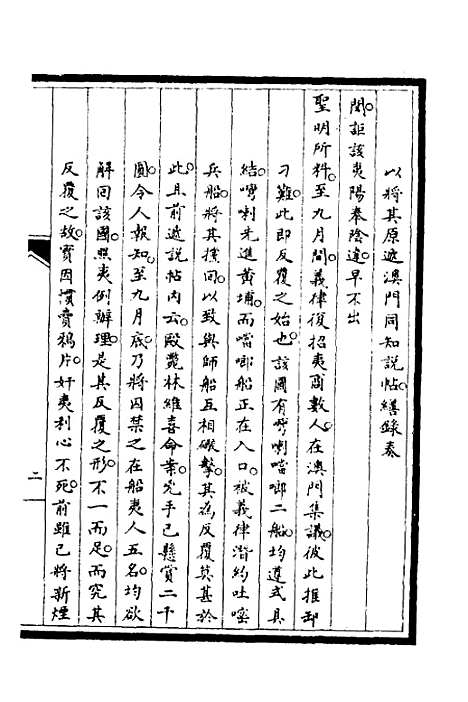 以將其原遞澳門同知說帖。繕錄奏
聞。詎該夷陽奉陰違。早不出
聖明所料。至九月間。義律復招夷商數人。在澳門集議。彼此推卸
刁難。此即反覆之始也。該國有噅喇𠸄啷二船。均遵式具
結。喇先進黃埔。而啷船正在入口。被義律潛約吐嘧
兵船。將其攩回。以致與師船互相礮擊。其為反覆莫甚於
此。且前遞說帖內云。毆斃林維喜命案。兇手已懸賞二千
圓。令人報知。至九月底。乃將囚禁之在船夷人五名。均欲
解回該國。照夷例辦理。是其反覆之形。不一而足。而究其
反覆之故。實因慣賣鴉片。奸夷利心不死。前雖已將新煙
二